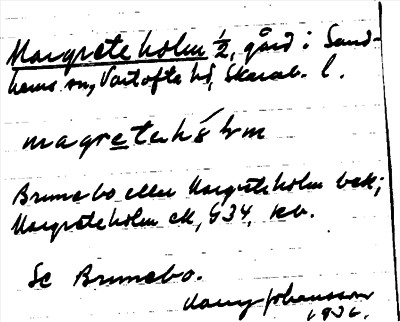 Margreteholm ½, gård i Sand-
hems sn, Vartofta hd, Skarab. l.
magretahólm
Brunnebo eller Margreteholm bek;
Margreteholm ek, G34, kb.
Se Brunnebo.
Harry Johansson
1926.